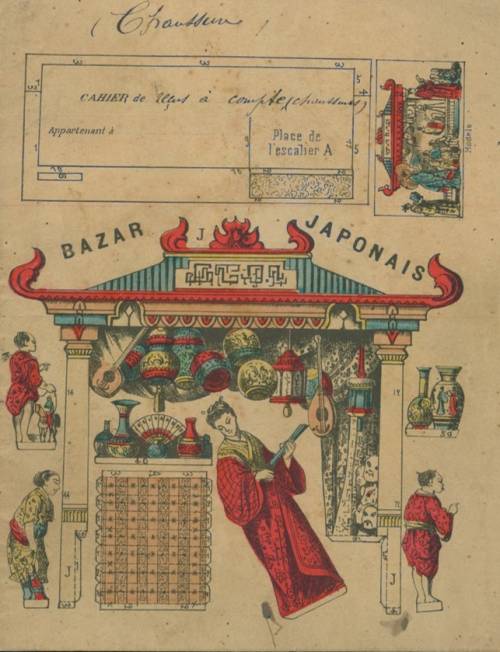 (Chaussures
CAHIER de reçus à compte (chaussures)
Appartenant à
Place de
l'escalier A
Modèle
BAZAR J JAPONAIS
16
17
40
39
J
J